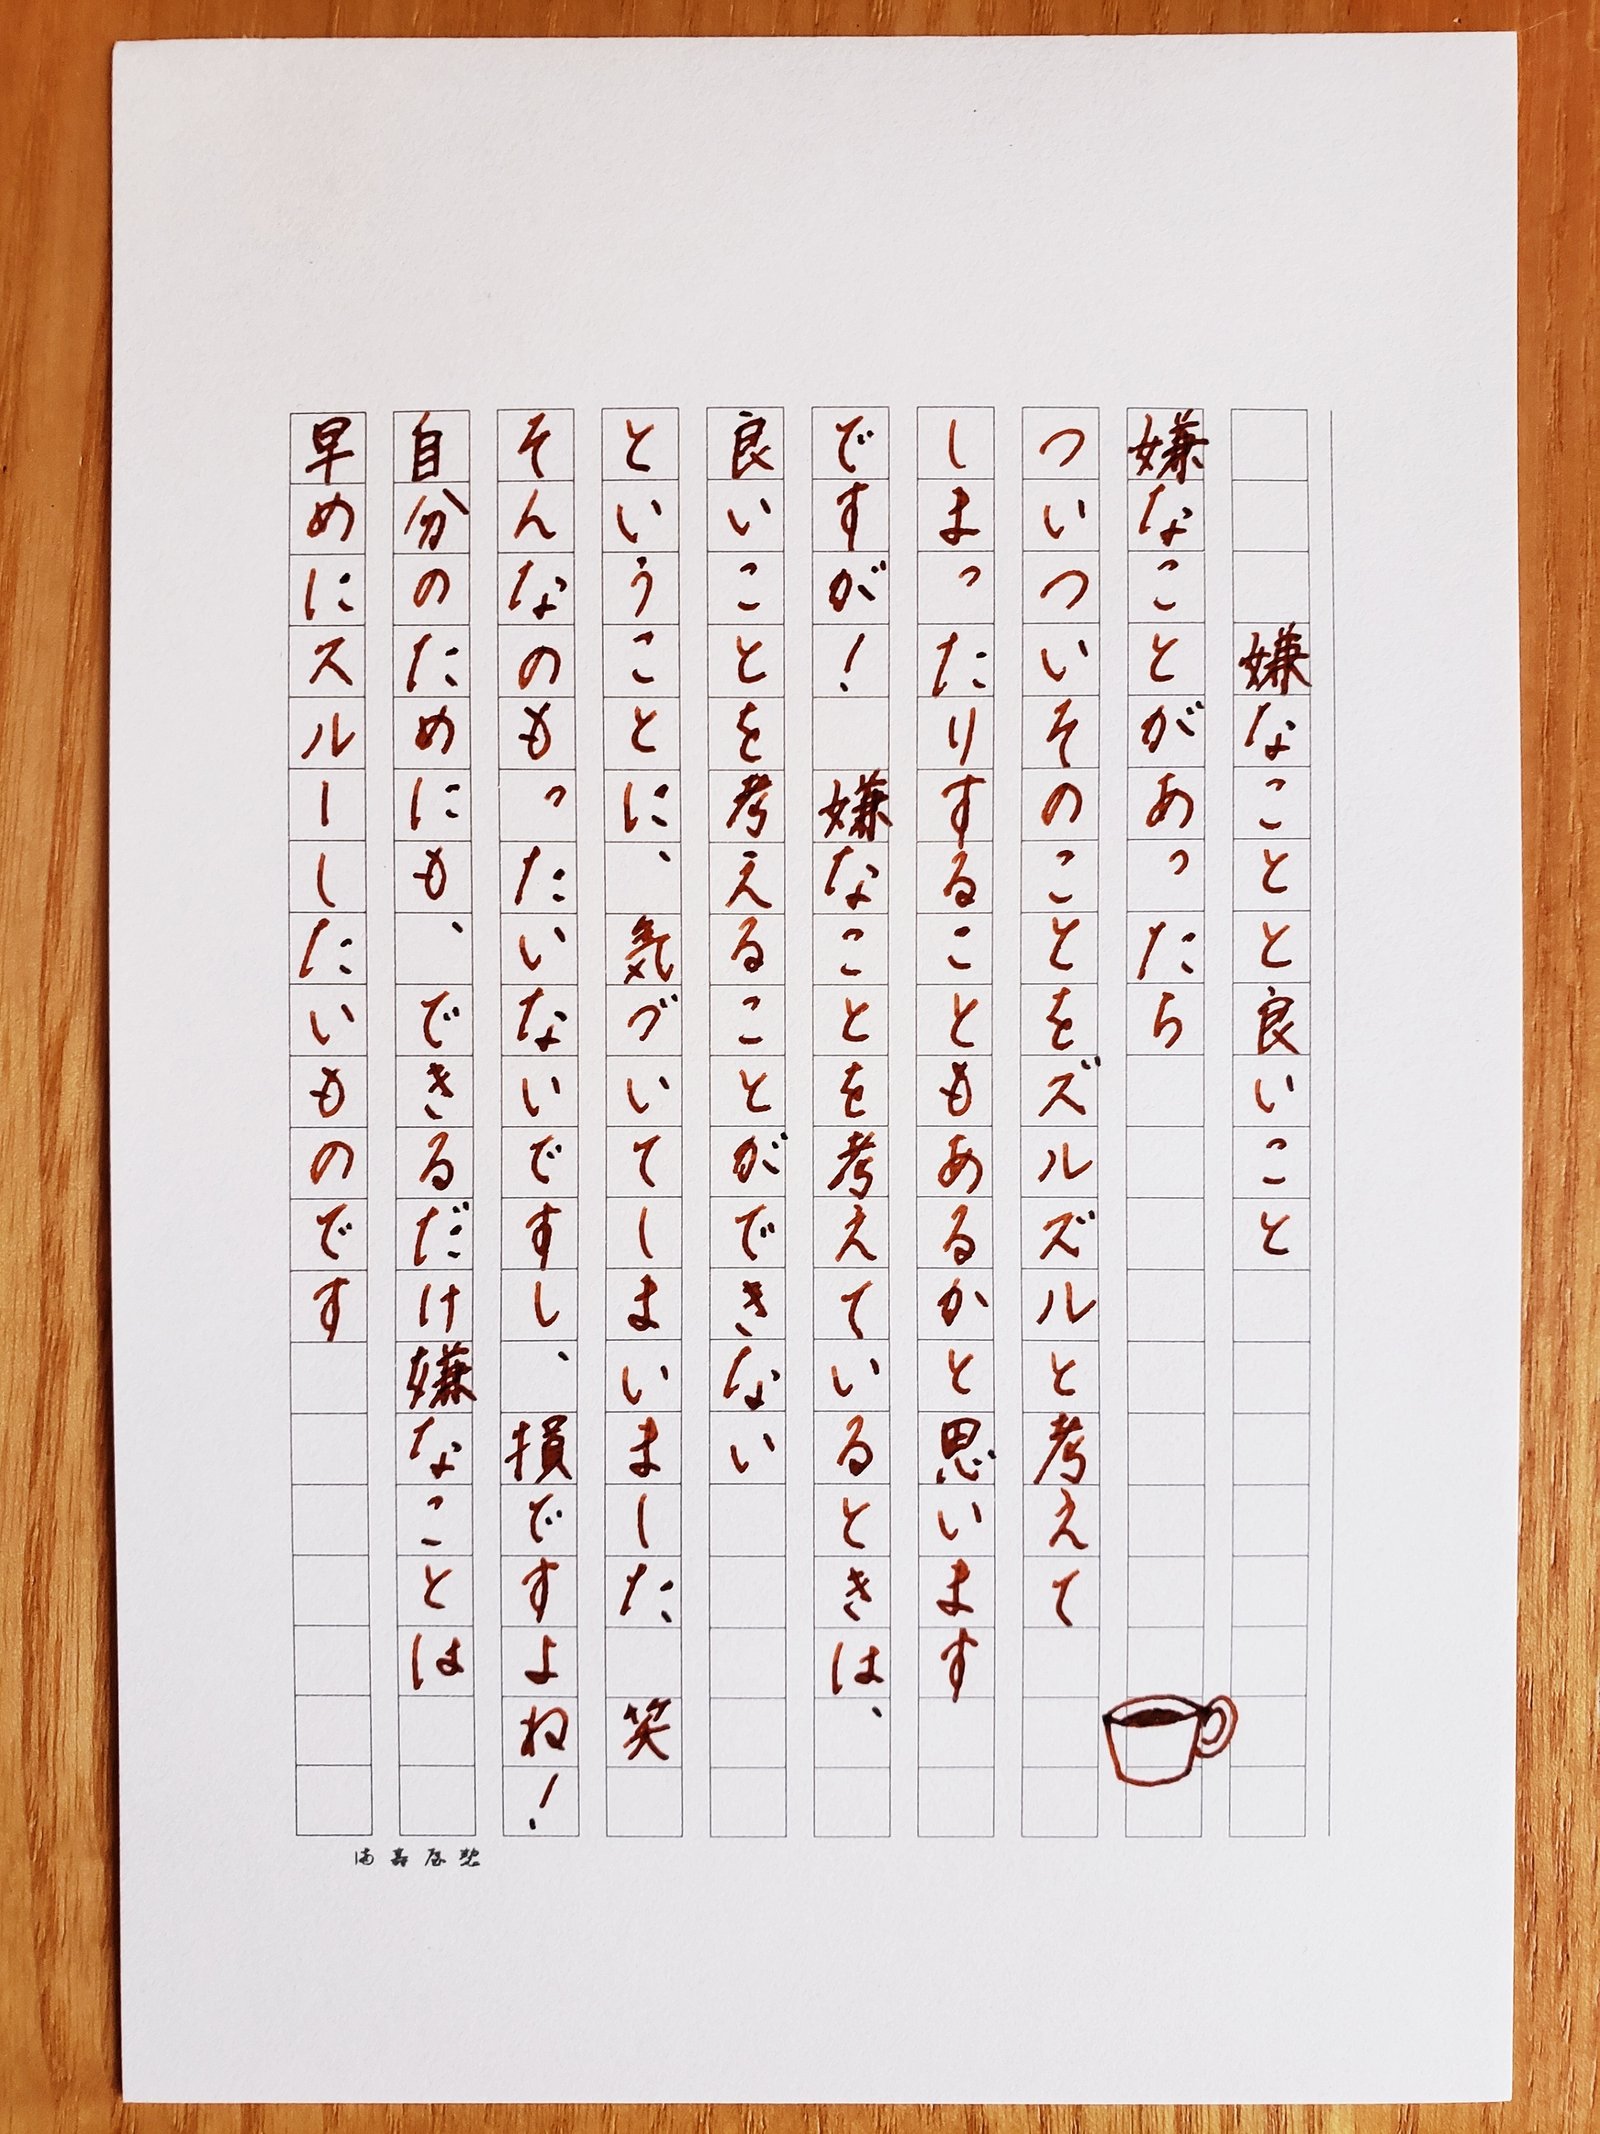 嫌なことと良いこと
嫌なことがあったら
ついついそのことをズルズルと考えて
しまったりすることもあるかと思います
ですが！　嫌なことを考えているときは、
良いことを考えることができない
ということに、気づいてしまいました　笑
そんなのもったいないですし、損ですよね！
自分のためにも、できるだけ嫌なことは
早めにスルーしたいものです
満寿屋製